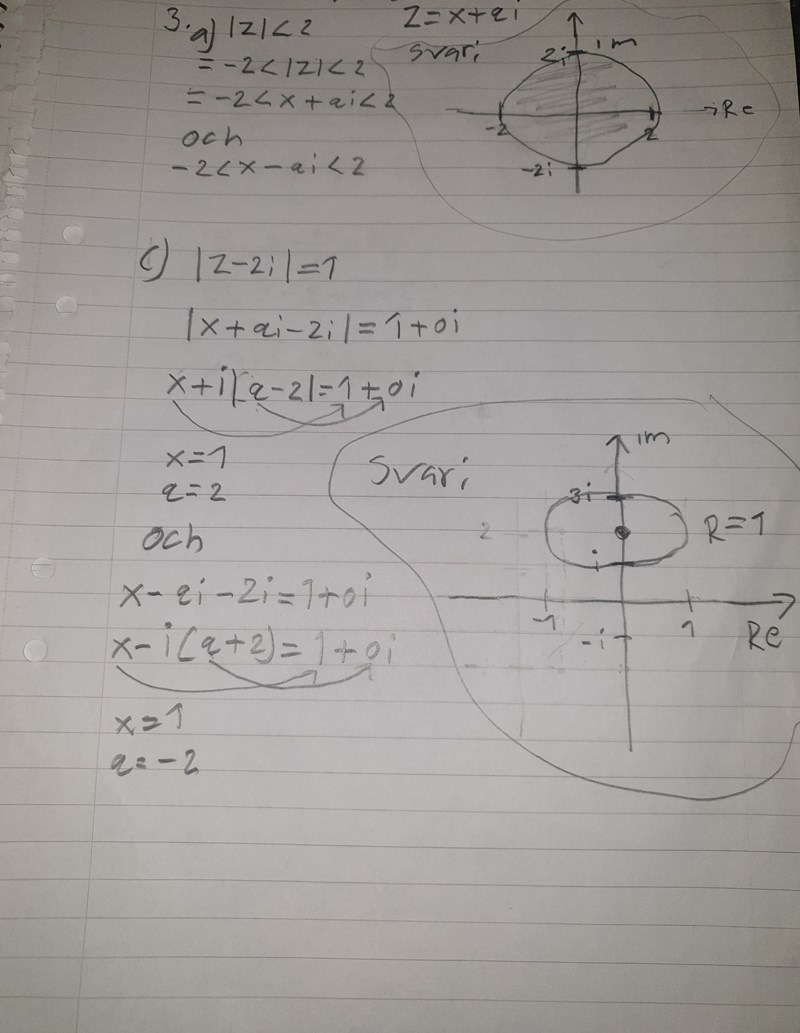 3. a) |z|<2
= -2<|z|<2
= -2<x+ai<2
och
-2<x-ai<2
z=x+ai
svar:
im
2i
-2
2
→Re
-2i
c) |z-2i|=1
|x+ai-2i|=1+0i
x+i(a-2)=1+0i
x=1
a=2
och
x-ai-2i=1+0i
x-i(a+2)=1+0i
x=1
a=-2
Svar:
im
3i
2
R=1
i
-1
1
Re
-i